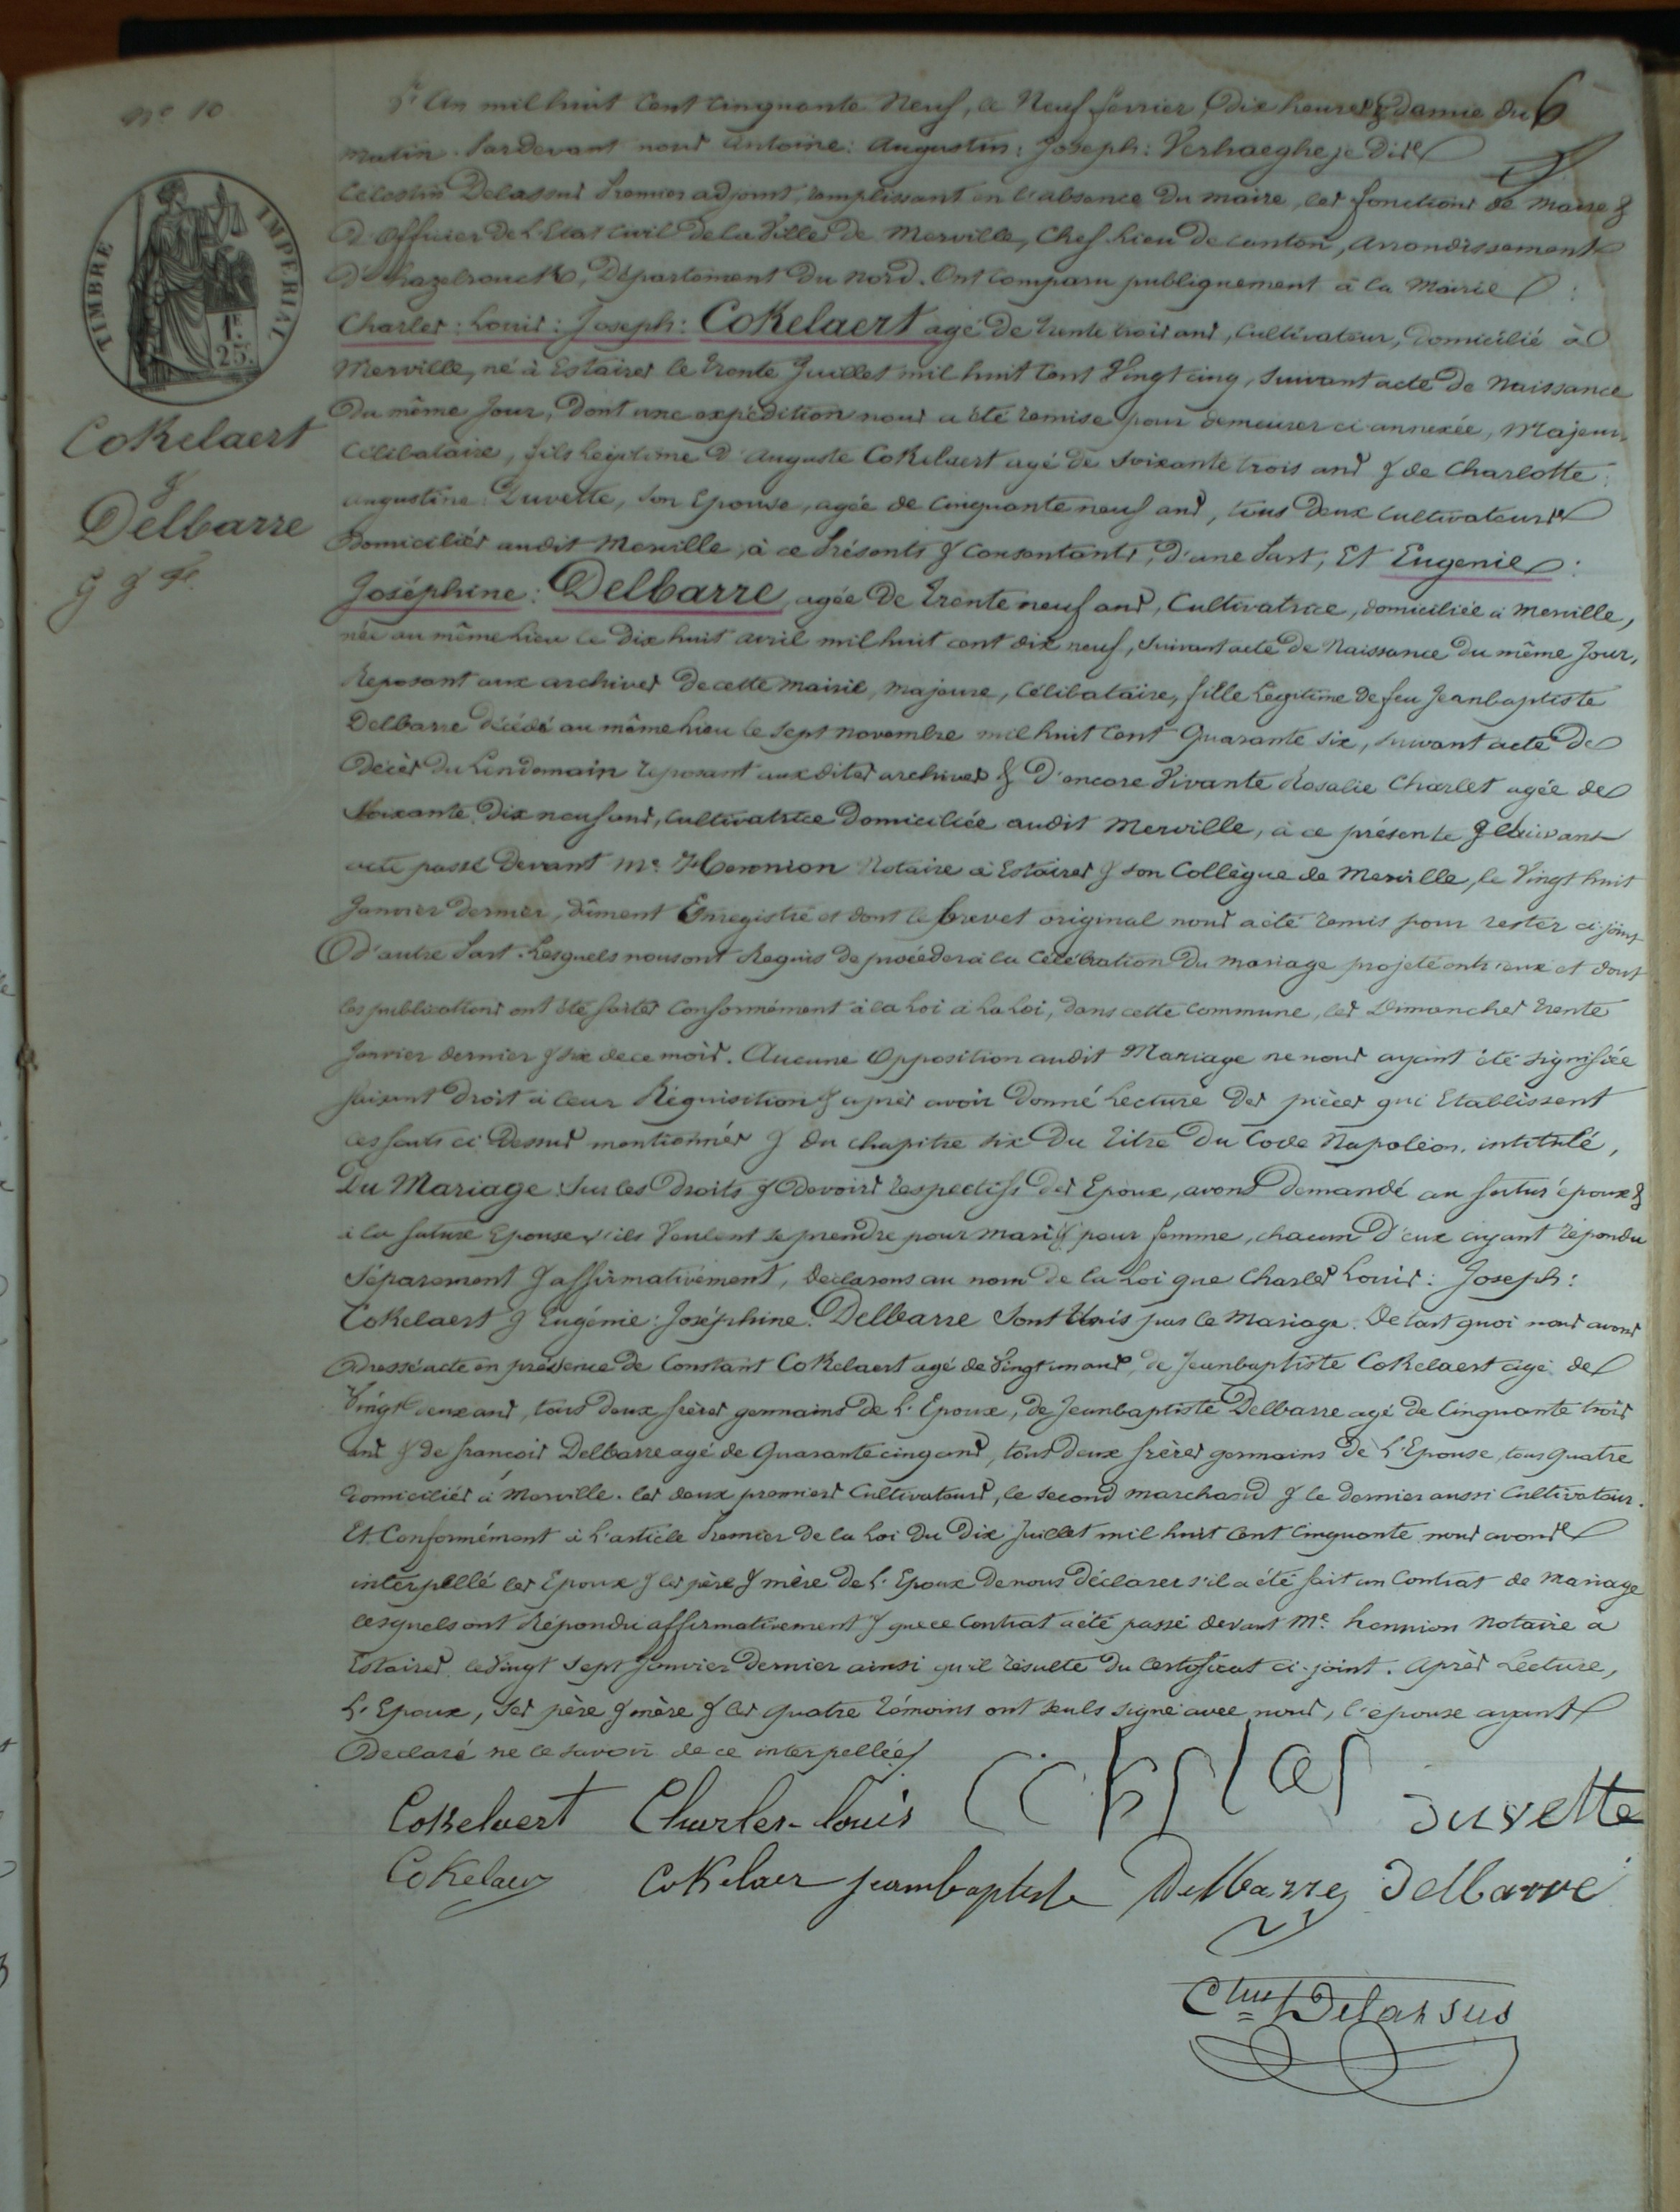 N° 10
6
L'An mil huit Cent Cinquante Neuf, le Neuf fevrier, Dix heures & demie du
matin. Pardevant nous Antoine: Augustin: Joseph: Verhaeghe je dis
Célestin Delassus Premier adjoint, remplissant en l'absence du maire, les fonctions de Maire &
d'officier de L'Etat Civil de la Ville de Merville, Chef Lieu de Canton, Arrondissement
d'hazebrouck, Département du Nord. Ont Comparu publiquement à la Mairie :
Charles: Louis: Joseph: Cokelaert agé de trente trois ans, Cultivateur, domicilié à
Merville, né à Estaires le trente Juillet mil huit Cent Vingt cinq, suivant acte de Naissance
du même Jour, dont une expédition nous a été remise pour demeurer ci annexée, Majeur,
Célibataire, fils Légitime d'Auguste Cokelaert agé de soixante trois ans & de Charlotte:
augustine Duvette, son Epouse, agée de Cinquante neuf ans, tous deux Cultivateurs
domiciliés audit Merville, à ce Présents & Consentants, d'une Part, Et Eugenie :
Joséphine: Delbarre agée de trente neuf ans, Cultivatrice, domiciliée à Merville,
née au même Lieu le dix huit avril mil huit cent dix neuf, suivant acte de Naissance du même Jour,
Reposant aux archives de cette mairie, majeure, Célibataire, fille Légitime de feu Jeanbaptiste
Delbarre décédé au même Lieu le sept novembre mil huit Cent Quarante six, suivant acte de
décès du Lendemain reposant aux dites archives & d'encore Vivante Rosalie Charlet agée de
soixante Dix neuf ans, Cultivatrice domiciliée audit Merville, à ce présente &
acte passé devant Me. Hennion Notaire à Estaires & son Collègue de Merville, le Vingt huit
Janvier dernier, dûment Enregistré et dont le brevet original nous a été remis pour rester ci-joint
d'autre Part. Lesquels nous ont Requis de procéder à la Célébration du mariage projeté entr'eux et dont
les publications ont été faites conformément à la Loi à la Loi, dans cette Commune, les Dimanches trente
Janvier dernier & six de ce mois. Aucune Opposition audit Mariage ne nous ayant été signifiée
faisant droit à leur Réquisition & après avoir Donné Lecture des pièces qui Etablissent
les faits ci dessus mentionnés & du chapitre six du titre du Code Napoléon, intitulé,
Du Mariage. Sur les Droits & Devoirs respectifs des Epoux, avons demandé au futur époux &
à la future Epouse s'ils Veulent se prendre pour mari & pour femme, chacun d'eux ayant répondu
Séparement & affirmativement, declarons au nom de la Loi que Charles Louis: Joseph:
Cokelaert & Eugénie: Joséphine: Delbarre Sont Unis par le Mariage. De tout quoi nous avons
Dressé acte en présence de Constant Cokelaert agé de Vingt un ans, de Jeanbaptiste Cokelaert agé de
Vingt deux ans, tous deux frères germains de L'Epoux, de Jeanbaptiste Delbarre agé de Cinquante trois
ans & de françois Delbarre agé de Quarante cinq ans, tous deux frères germains de L'Epouse, tous quatre
domiciliés à Merville. les deux premiers Cultivateurs, le second marchand & le dernier aussi Cultivateur.
Et Conformément à L'article Premier de la Loi du Dix Juillet mil huit Cent Cinquante, nous avons
interpellé les Epoux & les père & mère de L'Epoux de nous déclarer s'il a été fait un Contrat de Mariage
lesquels ont Répondu affirmativement & que ce Contrat a été passé devant Me. hennion Notaire à
Estaires, le Vingt Sept Janvier Dernier ainsi qu'il résulte du Certificat ci-joint. Après Lecture,
L'Epoux, Ses père & mère & les quatre témoins ont seuls signé avec nous, l'epouse ayant
Declaré ne le savoir de ce interpellée
TIMBRE IMPERIAL
1F.
25C.
Cokelaert
&
Delbarre
Cokelaert Charles-louis Duvette
Cokelaer Cokelaer jeambaptiste Delbarre Delbarre
Ctin Delassus